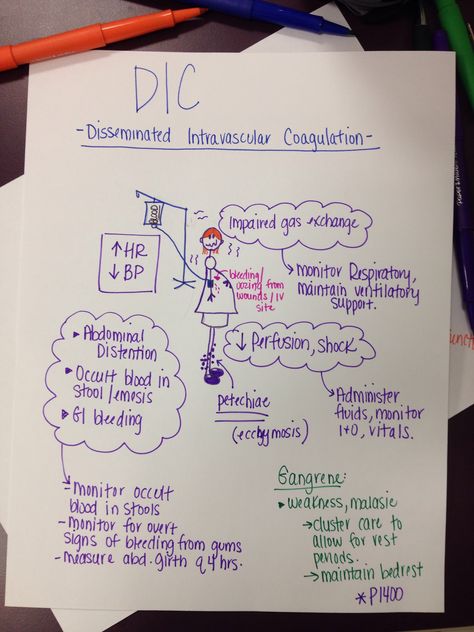 DIC
- Disseminated Intravascular Coagulation -
BLOOD
Impaired gas exchange
↑ HR
↓ BP
bleeding/
oozing from
wounds/IV
site
monitor Respiratory,
maintain ventilatory
support.
▸ Abdominal
Distention
▸ Occult blood in
stool/emosis
▸ GI bleeding
↓ Perfusion, shock
petechiae
(ecchymosis)
Administer
fluids, monitor
I+O, vitals.
- monitor occult
blood in stools
- monitor for overt
signs of bleeding from gums
- measure abd. girth q 4 hrs.
Gangrene:
▸ weakness, malasie
→ cluster care to
allow for rest
periods.
→ maintain bedrest
* P1400